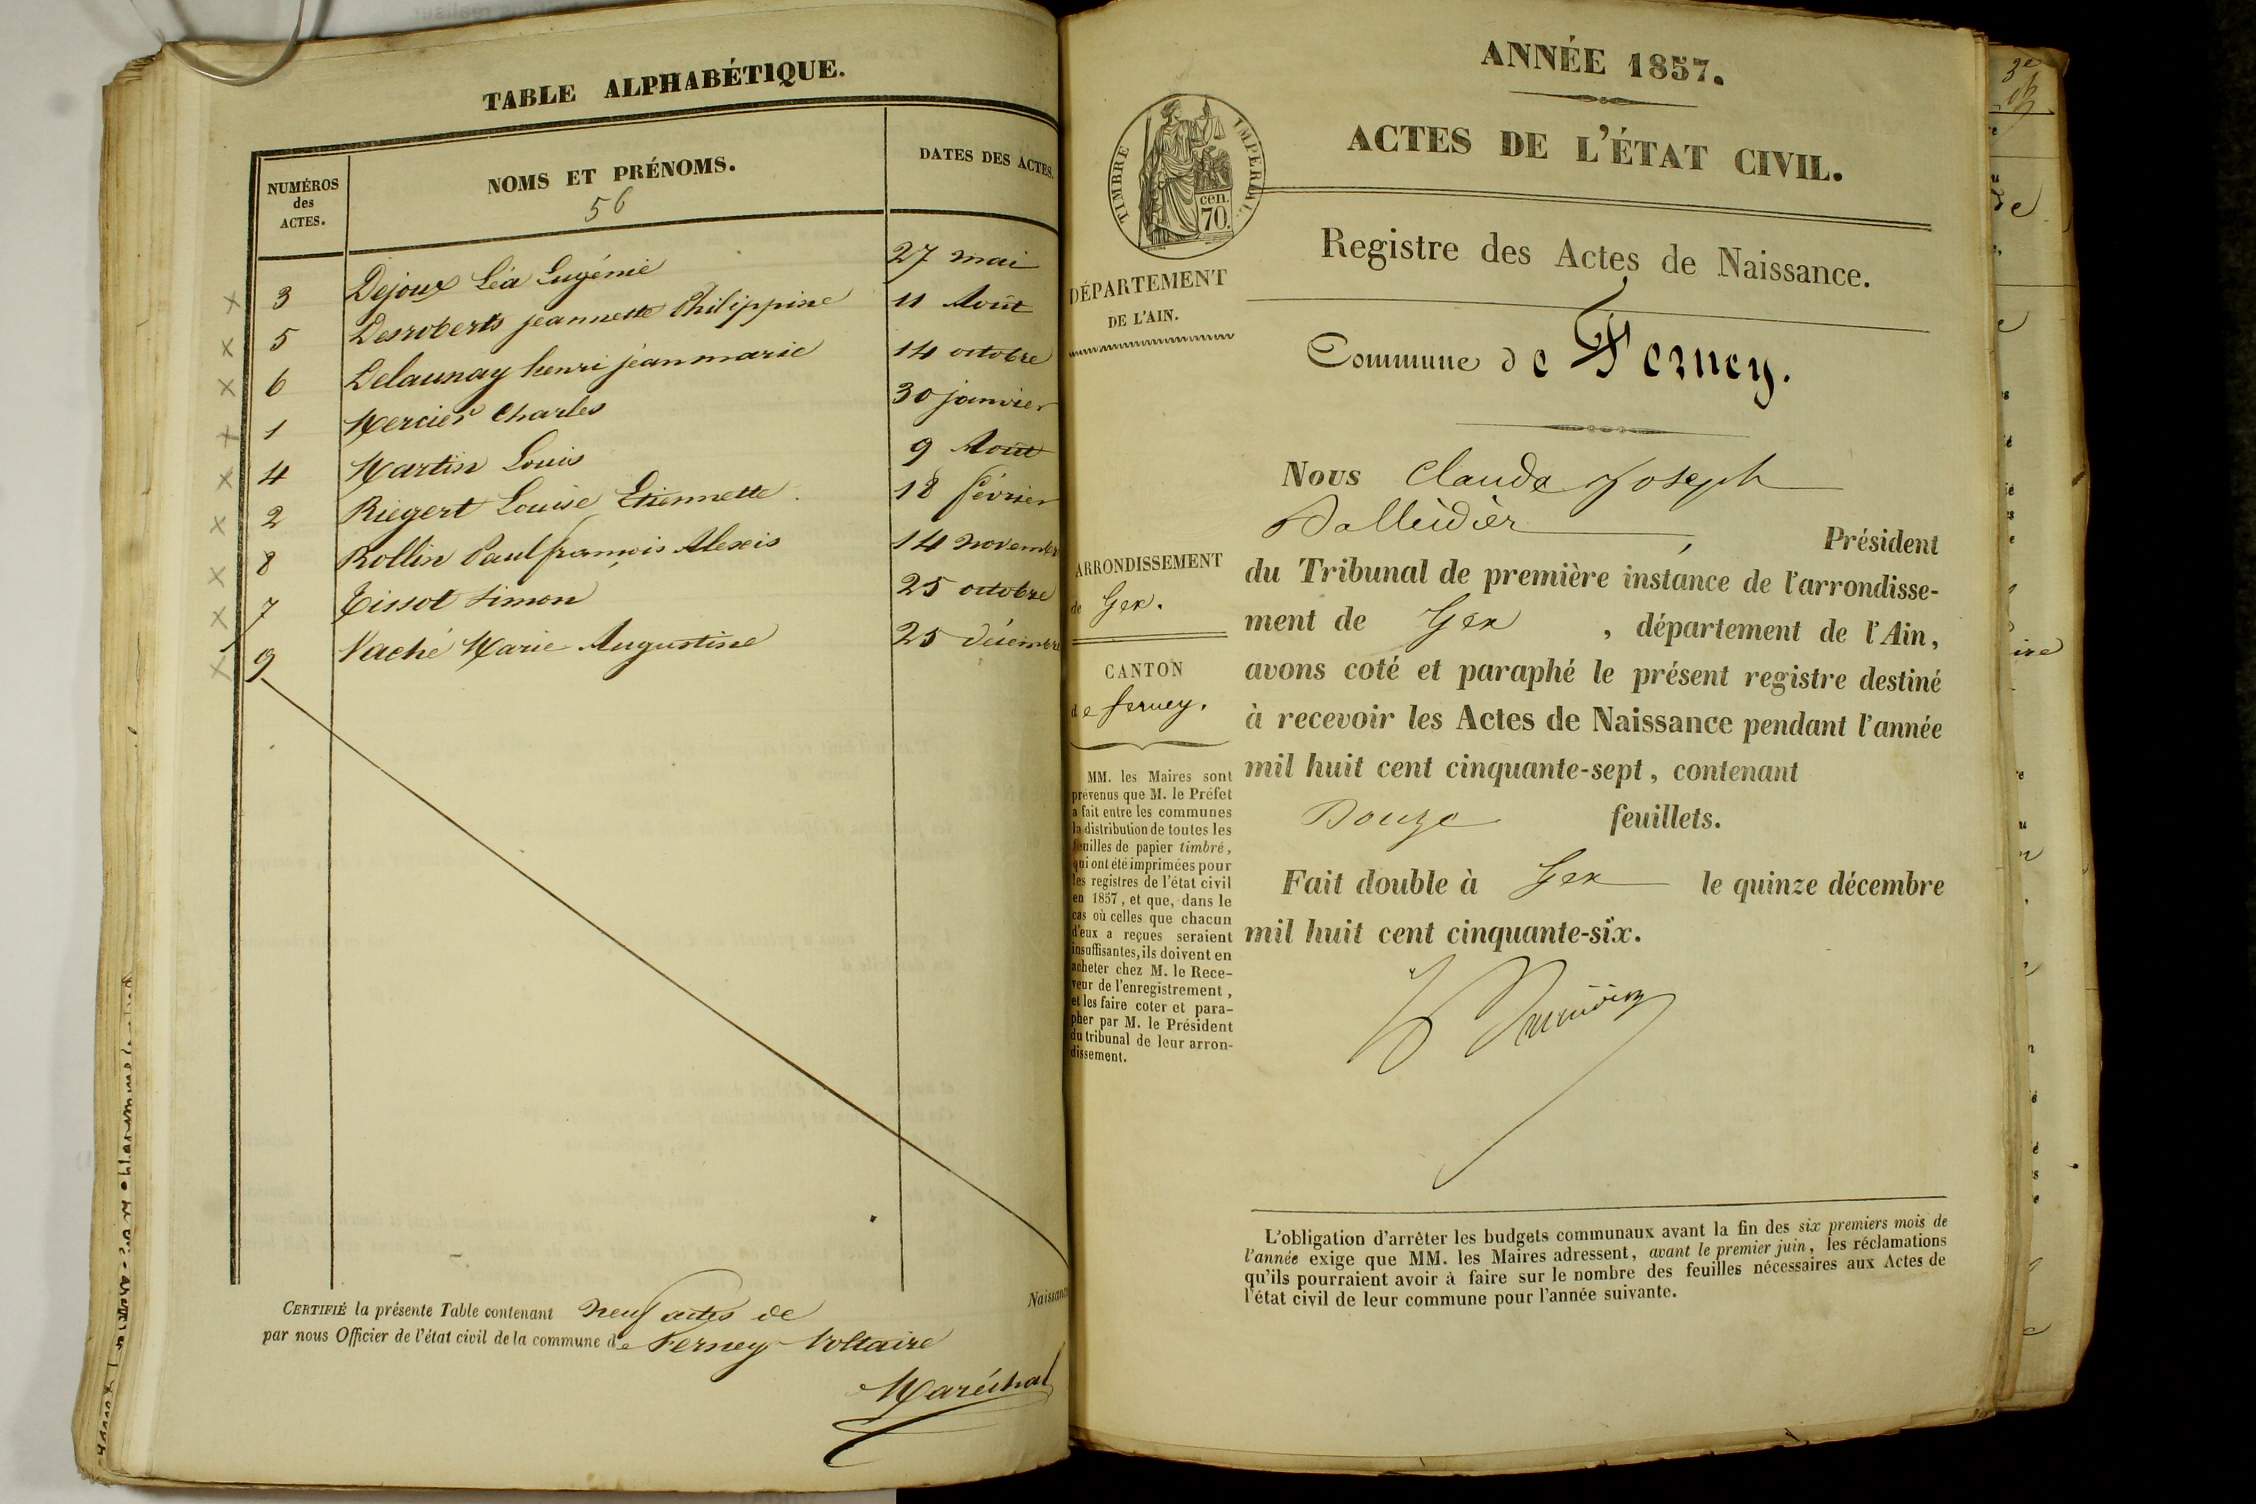 TABLE ALPHABÉTIQUE.
NUMÉROS des ACTES.
NOMS ET PRÉNOMS.
DATES DES ACTES.
56
3 Dejoux Léa Eugénie 27 mai
5 Desroberts jeannette Philippine 11 Août
6 Delaunay henri jean marie 14 octobre
1 Mercier Charles 30 janvier
4 Martin Louis 9 Août
2 Riegert Louise Etiennette 18 février
8 Rollin Paul françois Alexis 14 novembre
7 Tissot Simon 25 octobre
9 Vaché Marie Augustine 25 décembre
Naissance
CERTIFIÉ la présente Table contenant neuf actes de
par nous Officier de l'état civil de la commune de Ferney-Voltaire
Maréchal
ANNÉE 1857.
ACTES DE L'ÉTAT CIVIL.
TIMBRE IMPÉRIAL.
cen.
70.
DÉPARTEMENT
DE L'AIN.
Registre des Actes de Naissance.
Commune de Ferney.
Nous Claude Joseph
, Président
du Tribunal de première instance de l'arrondisse-
ment de Gex , département de l'Ain,
avons coté et paraphé le présent registre destiné
à recevoir les Actes de Naissance pendant l'année
mil huit cent cinquante-sept, contenant
Douze feuillets.
Fait double à Gex le quinze décembre
mil huit cent cinquante-six.
ARRONDISSEMENT
de Gex.
CANTON
de ferney.
MM. les Maires sont
prévenus que M. le Préfet
a fait entre les communes
la distribution de toutes les
feuilles de papier timbré,
qui ont été imprimées pour
les registres de l'état civil
en 1857, et que, dans le
cas où celles que chacun
d'eux a reçues seraient
insuffisantes, ils doivent en
acheter chez M. le Rece-
veur de l'enregistrement,
et les faire coter et para-
pher par M. le Président
du tribunal de leur arron-
dissement.
L'obligation d'arrêter les budgets communaux avant la fin des six premiers mois de
l'année exige que MM. les Maires adressent, avant le premier juin, les réclamations
qu'ils pourraient avoir à faire sur le nombre des feuilles nécessaires aux Actes de
l'état civil de leur commune pour l'année suivante.